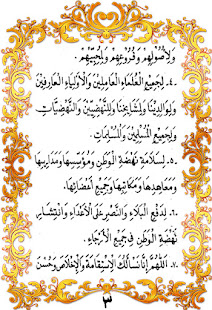 وَلِأُصُوْلِهِمْ وَفُرُوْعِهِمْ وَلِمُحِبِّيْهِمْ.
٤. لِجَمِيْعِ الْعُلَمَاءِ الْعَامِلِيْنَ وَالْأَوْلِيَاءِ الْعَارِفِيْنَ
وَلِوَالِدِيْنَا وَلِمَشَايِخِنَا وَلِلنَّهْضِيِّيْنَ وَالنَّهْضِيَّاتِ
وَلِجَمِيْعِ الْمُسْلِمِيْنَ وَالْمُسْلِمَاتِ.
٥. لِسَلَامَةِ نَهْضَةِ الْوَطَنِ وَمُؤَسِّسِيْهَا وَمَدَارِسِهَا
وَمَعَاهِدِهَا وَمَكَاتِبِهَا وَجَمِيْعِ أَعْضَائِهَا.
٦. لِدَفْعِ الْبَلَاءِ وَالنَّصْرِ عَلَى الْأَعْدَاءِ وَانْتِشَارِ
نَهْضَةِ الْوَطَنِ فِيْ جَمِيْعِ الْأَرْجَاءِ.
٧. اَللّٰهُمَّ إِنَّا نَسْأَلُكَ الْاِسْتِقَامَةَ وَالْإِخْلَاصَ وَحُسْنَ
٣